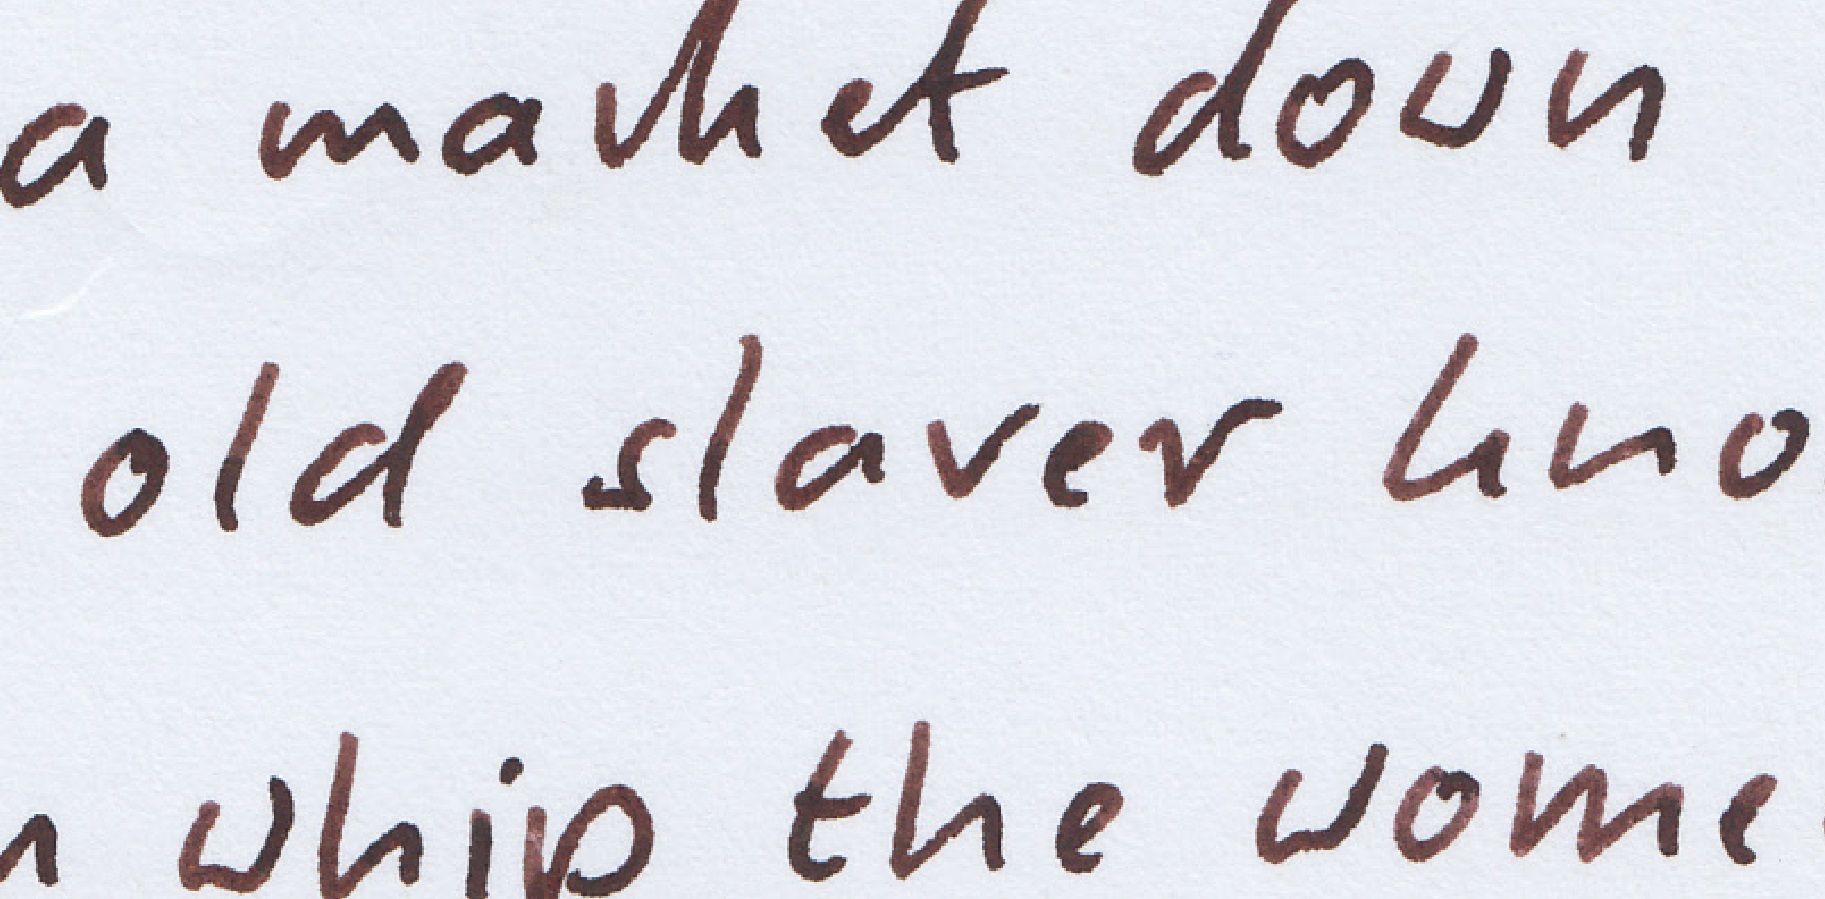 a market down
old slaver kno
n whip the wome